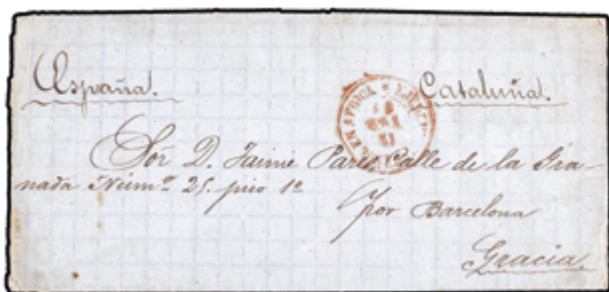 España.
Cataluña.
Sor D. Jaime Pares Calle de la Gra-
nada Núm.o 25. piso 1o
por Barcelona
Gracia.